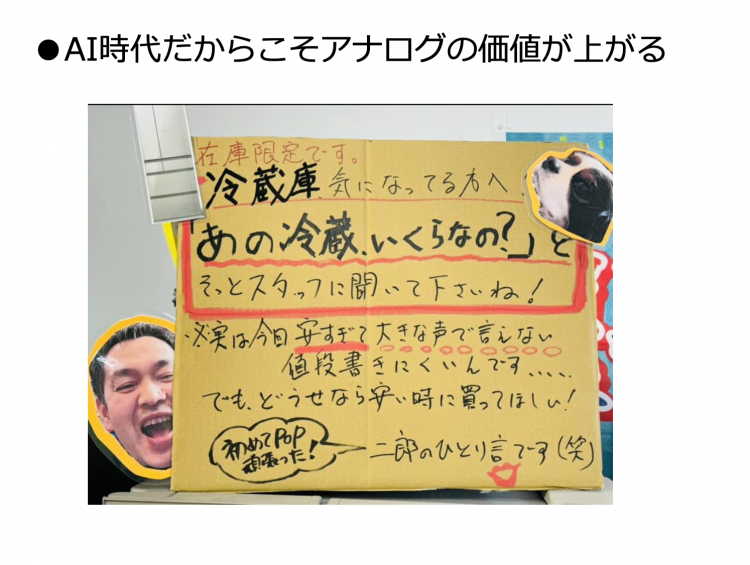 ●AI時代だからこそアナログの価値が上がる
在庫限定です。
冷蔵庫、気になってる方へ、
「あの冷蔵、いくらなの?」と
そっとスタッフに聞いて下さいね!
※実は今日安すぎて大きな声で言えない
値段書きにくいんです、、、、、
でも、どうせなら安い時に買ってほしい!
初めてPOP
頑張った!
二郎のひとり言です(笑)